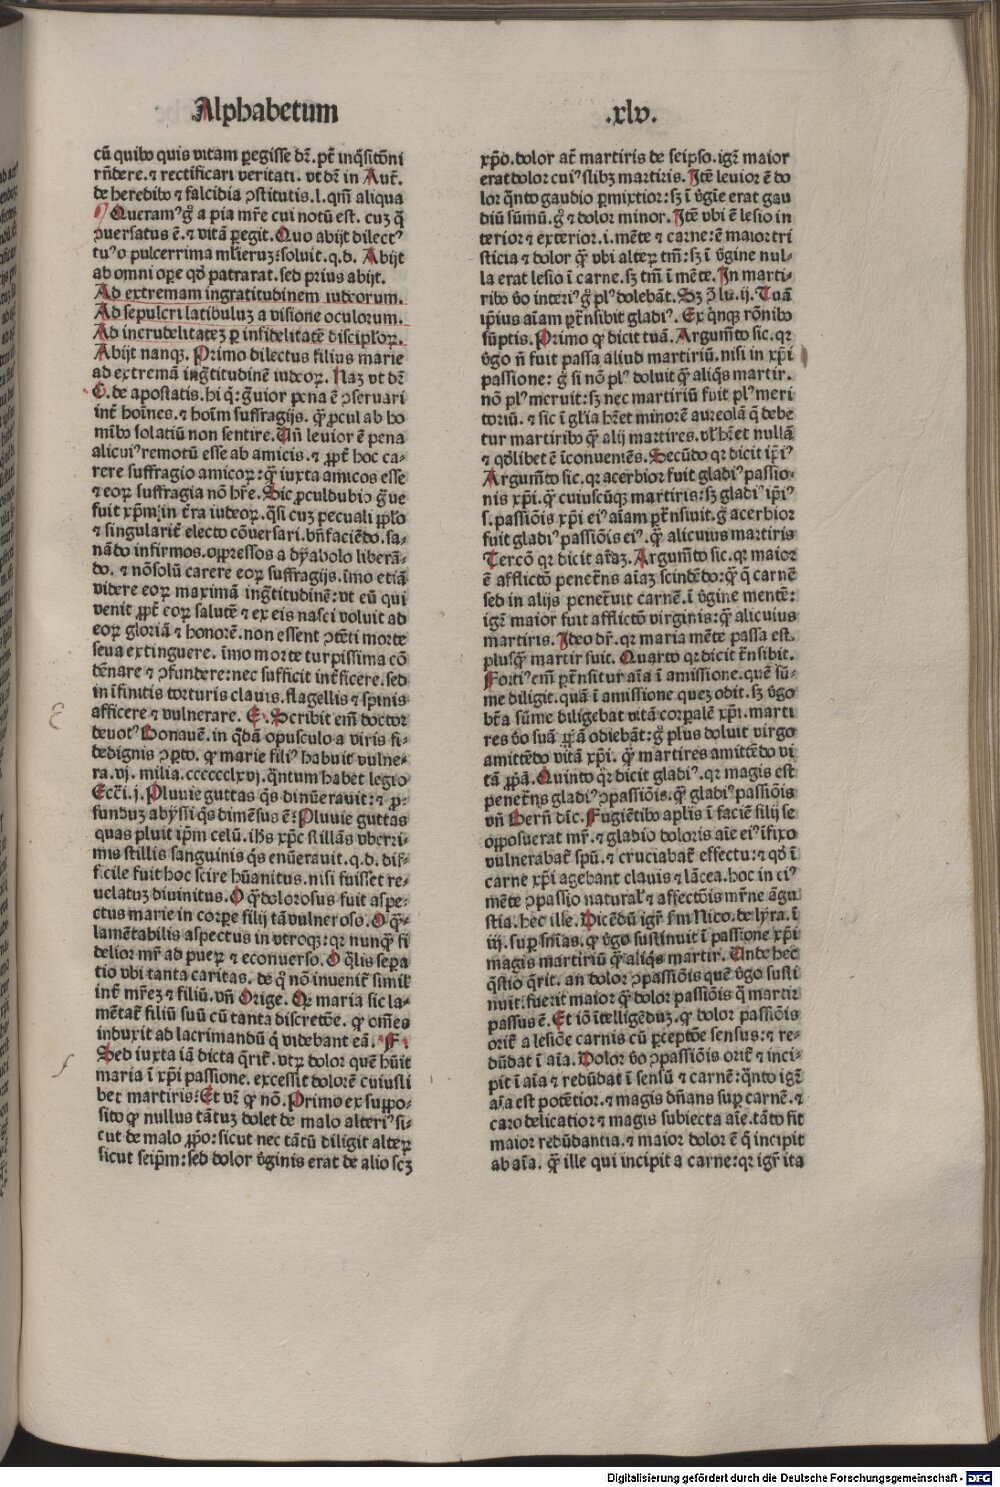 Alphabetum
.xlv.
cū quibꝰ quis vitam ꝑegisse dr̄. pt̄ inq̄sitōni
rn̄dere. ⁊ rectificari veritati. vt dr̄ in Aut̄.
de heredibꝰ ⁊ falcidia ꝯstitutis. l. qm̄ aliqua
Queramꝰ gͦ a pia mr̄e cui notū est. cuz q̄
ꝯuersatus ē. ⁊ vitā ꝑegit. Quo abijt dilectꝰ
tuꝰ o pulcerrima mlieruz: soluit. q.d. Abijt
ab omni oꝑe qď patrarat. sed prius abijt.
Ad extremam ingratitudinem iudeorum.
Ad sepulcri latibuluz a visione oculorum.
Ad incrudelitatez ꝑ infidelitatē disciploꝝ.
Abijt nanqꝫ. Primo dilectus filius marie
ad extremā ingr̄titudinē iudeoꝝ. Naz vt dr̄
C. de apostatis. hi q̄: gͣuior pena ē ꝯseruari
int̄ hoīnes. ⁊ hoīm suffragijs. qͣꝫ ꝓcul ab ho
mībꝰ solatiū non sentire. Un̄ leuior ē pena
alicuiꝰ remotū esse ab amicis. ⁊ ꝓpt̄ hoc ca-
rere suffragio amicoꝝ: qͣꝫ iuxta amicos esse
⁊ eoꝝ suffragia nō hr̄e. Sic ꝓculdubio gͣue
fuit xp̄m in t̄ra iudeoꝝ. q̄si cuz pecuali ꝓplo
⁊ singularit̄ electo cōuersari. bn̄faciēdo. sa-
nādo infirmos. oppressos a dyabolo liberā-
do. ⁊ nōsolū carere eoꝝ suffragijs. īmo etiā
videre eoꝝ maximā ingͣtitudinē: vt eū qui
venit ꝓpt̄ eoꝝ salutē ⁊ ex eis nasci voluit ad
eoꝝ gloriā ⁊ honorē. non essent ꝯtēti morte
seua extinguere. īmo morte turpissima cō
dēnare ⁊ ꝯfundere: nec sufficit int̄ficere. sed
in īfinitis torturis clauis. flagellis ⁊ spinis
afficere ⁊ vulnerare. E. Scribit em̄ doctor
deuotꝰ Bonauē. in q̄dā opusculo a viris fi-
dedignis ꝯꝑto. qͥ marie filiꝰ habuit vulne-
ra. vj. milia. ccccccclxvj. q̄ntum habet legio
Ecci̅. j. Pluuie guttas q̄s dinūerauit: ⁊ ꝓ-
funduz abyssi q̄s dimēsus ē: Pluuie guttas
quas pluit ip̄m celū. ihs xp̄c stillās vberri-
mis stillis sanguinis q̄s enūerauit. q.d. dif-
ficile fuit hoc scire hūanitus. nisi fuisset re-
uelatuz diuinitus. O qͣꝫ dolorosus fuit aspe-
ctus marie in corꝑe filij tā vulneroso. O qͣꝫ
lamētabilis aspectus in vtroqꝫ: qr nunqͣꝫ fi
delior mr̄ ad pueꝝ ⁊ econuerso. O q̄lis seꝑa
tio vbi tanta caritas. de q̄ nō inuenit̄ simil̄
int̄ mr̄ez ⁊ filiū. vn̄ Orige. Qr maria sic la-
mētat̄ filiū suū cū tanta discretōe. qͥ om̄es
induxit ad lacrimandū q̄ videbant eā. F.
Sed iuxta iā dicta q̄rit̄. vtꝝ dolor quē hūit
maria ī xp̄i passione. excessit dolorē cuiusli
bet martiris: Et vr̄ qͥ nō. Primo ex suppo-
sito qͥ nullus tātuz dolet de malo alteriꝰ si-
cut de malo ꝓpͦo: sicut nec tātū diligit alteꝝ
sicut seip̄m: sed dolor v̓ginis erat de alio scꝫ
xp̄o. dolor at̄ martiris de seipso. igr̄ maior
erat dolor cuiꝰ slibꝫ martiris. Itē leuior ē do
lor q̄nto gaudio ꝑmixtior: sꝫ ī v̓gīe erat gau
diū sūmū. gͦ ⁊ dolor minor. Itē vbi ē lesio in
terior ⁊ exterior. i. mēte ⁊ carne: ē maior tri
sticia ⁊ dolor qͣꝫ vbi alteꝝ tm̄: sꝫ ī v̓gine nul-
la erat lesio ī carne. sꝫ tm̄ ī mēte. In marti-
ribꝰ v̓o interiꝰ gͦ plꝰ dolebāt. Sꝫ ꝯͣ lu. ij. Tuā
ip̄ius aīam ꝑt̄nsibit gladiꝰ. Ex qͥnqꝫ rōnibꝰ
sūptis. Primo qͥ dicit tuā. Argum̄to sic. qr
v̓go n̄ fuit passa aliud martiriū. nisi in xp̄i
passione: gͦ si nō plꝰ doluit qͣꝫ aliqͥs martir.
nō plꝰ meruit: sꝫ nec martiriū fuit plꝰ meri
toriū. ⁊ sic ī gl̄ia hr̄et minorē aureolā q̄ debe
tur martiribꝰ qͣꝫ alij martires. vl̓ hr̄et nullā
⁊ qd̓libet ē īconueniēs. Secūdo qr dicit ip̄iꝰ
Argum̄to sic. qr acerbior fuit gladiꝰ passio-
nis xp̄i. qͣꝫ cuiuscūqꝫ martiris: sꝫ gladiꝰ ip̄iꝰ
s. passiōis xp̄i eiꝰ aīam ꝑt̄nsiuit. gͦ acerbior
fuit gladiꝰ passiōis eiꝰ. qͣꝫ alicuius martiris
Tercō qr dicit aīaz. Argum̄to sic. qr maior
ē afflictō penet̄ns aīaz scindēdo: qͣꝫ q̄ carnē
sed in alijs penet̄uit carnē. ī v̓gine mentē:
igr̄ maior fuit afflictō virginis: qͣꝫ alicuius
martiris. Ideo dr̄. qr maria mēte passa est.
plusqͣꝫ martir fuit. Quarto qr dicit t̄nsibit.
Fortiꝰ em̄ ꝑt̄nsitur aīa ī amissione. quē sū-
me diligit. quā ī amissione quez odit. sꝫ v̓go
bt̄a sūme diligebat vitā corꝑalē xp̄i. marti
res v̓o suā ꝓp̄ā odiebāt: gͦ plus doluit virgo
amittēdo vitā xp̄i. qͣꝫ martires amittēdo vi
tā ꝓp̄ā. Quinto qr̄ dicit gladiꝰ. qr magis est
penet̄ns gladiꝰ ꝯpassiōis. qͣꝫ gladiꝰ passiōis
vn̄ Bern̄ dīc. Fugiētibꝰ aplis ī faciē filij se
opposuerat mr̄. ⁊ gladio doloris aīe eiꝰ īfixo
vulnerabat̄ spū. ⁊ cruciabat̄ effectu: ⁊ qd̓ ī
carne xp̄i agebant clauis ⁊ lācea. hoc in eiꝰ
mēte ꝯpassio natural̓ ⁊ affectōis mr̄ne āgu
stia. hec ille. Dicēdū igr̄ ſm Nico. de lyra. ī
iij. suꝑ sn̄ias. qͥ v̓go sustinuit ī passione xp̄i
magis martiriū qͣꝫ aliqͥs martir. Unde hec
q̄stio q̄rit. an dolor ꝯpassiōis quē v̓go susti
nuit. fuerit maior qͣꝫ dolor passiōis q̄ martir
passus ē. Et iō ītelligēduz. qͥ dolor passiōis
orit̄ a lesiōe carnis cū ꝑceptōe sensus: ⁊ re-
dūdat ī aīa. Dolor v̓o ꝯpassiōis orit̄ ⁊ inci-
pit ī aīa ⁊ redūdat ī sensū ⁊ carnē: q̄nto igr̄
aīa est potētior. ⁊ magis dn̄ans suꝑ carnē. ⁊
caro delicatior ⁊ magis subiecta aīe. tāto fit
maior redūdantia. ⁊ maior dolor ē q̄ incipit
ab aīa. qͣꝫ ille qui incipit a carne: qr igr̄ ita
Digitalisierung gefördert durch die Deutsche Forschungsgemeinschaft - DFG